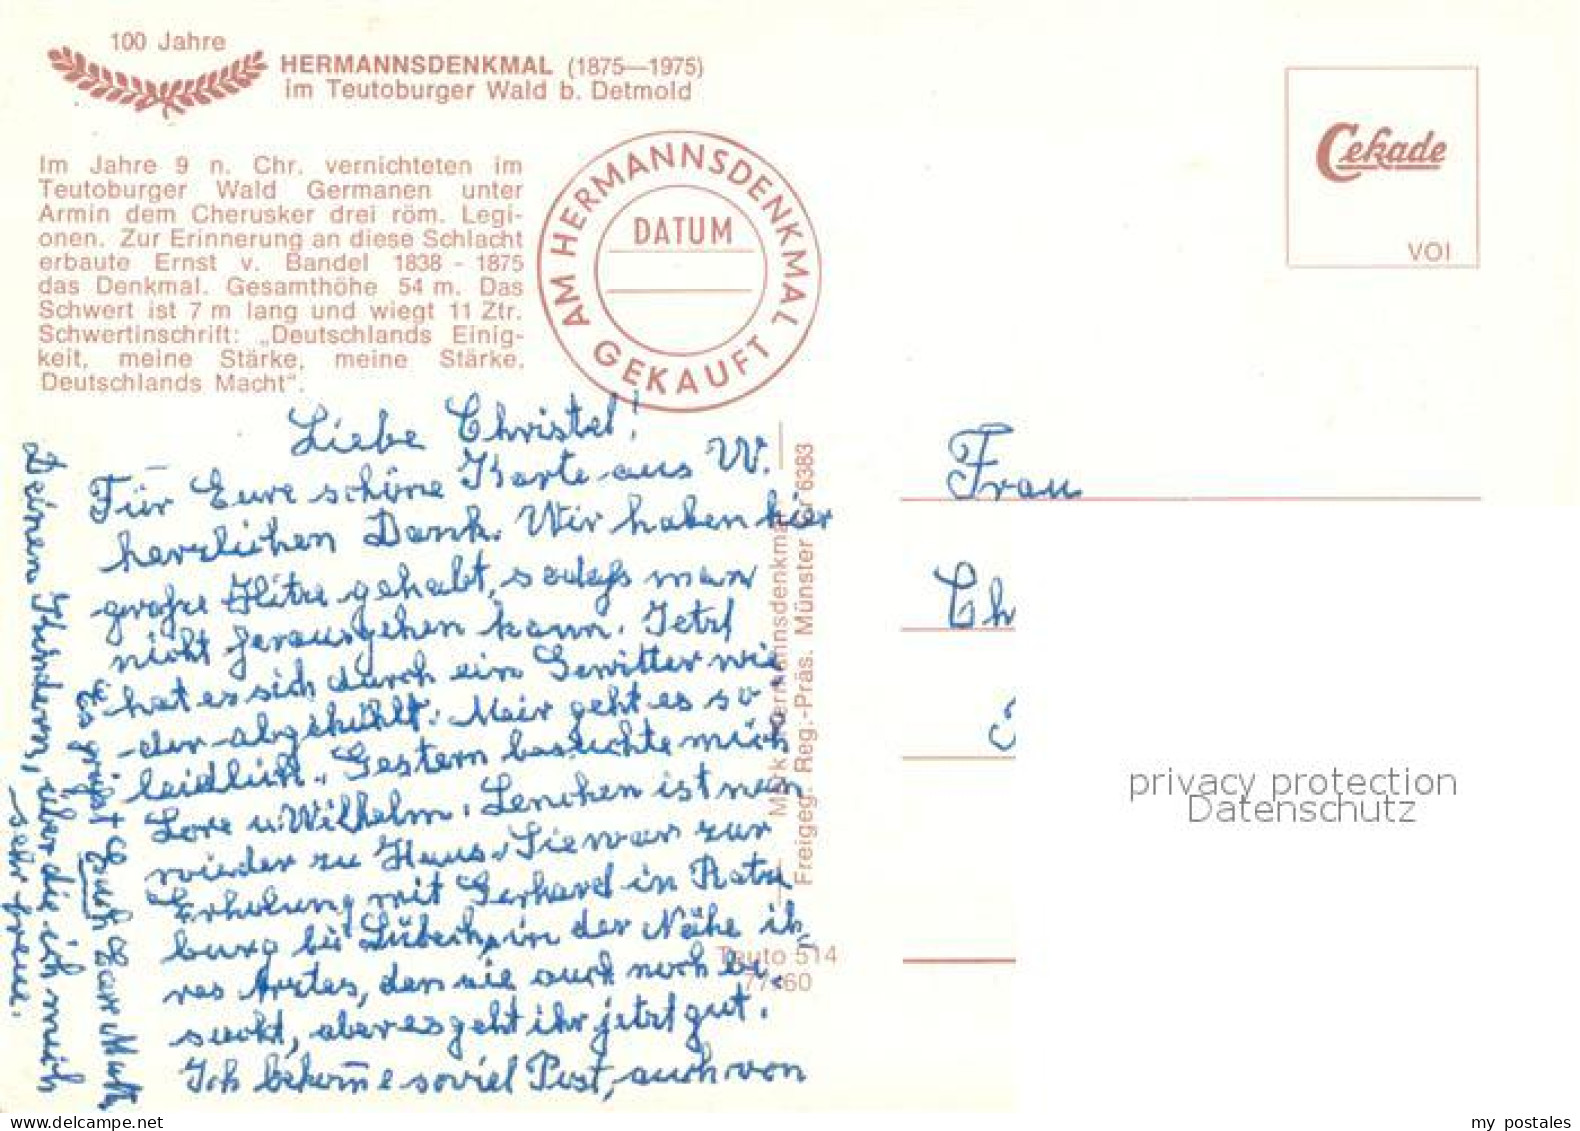 100 Jahre
HERMANNSDENKMAL (1875—1975)
im Teutoburger Wald b. Detmold
Im Jahre 9 n. Chr. vernichteten im
Teutoburger Wald Germanen unter
Armin dem Cherusker drei röm. Legi-
onen. Zur Erinnerung an diese Schlacht
erbaute Ernst v. Bandel 1838 - 1875
das Denkmal. Gesamthöhe 54 m. Das
Schwert ist 7 m lang und wiegt 11 Ztr.
Schwertinschrift: „Deutschlands Einig-
keit, meine Stärke, meine Stärke,
Deutschlands Macht".
AM HERMANNSDENKMAL
DATUM
GEKAUFT
Cekade
VOI
Liebe Christel!
Für Eure schöne Karte aus W.
herzlichen Dank. Wir haben hier
große Hitze gehabt, sodaß man
nicht herausgehen kann. Jetzt
hat es sich durch ein Gewitter wie
der abgekühlt. Mir geht es so
leidlich. Gestern besuchte mich
Lore u. Wilhelm. Lenchen ist nun
wieder zu Haus. Sie war zur
Erholung mit Gerhard in Ratze
burg bei Lübeck, in der Nähe ih
res Arztes, den sie auch noch be
sucht, aber es geht ihr jetzt gut.
Ich bekomme soviel Post, auch von
Deinen Kindern, über die ich mich
sehr freue.
Es grüßt Euch Eure Mutti
Freigeg. Reg.-Präs. Münster 6383
Teuto 514
77 60
Frau
Ch
privacy protection
Datenschutz
www.delcampe.net
my postales